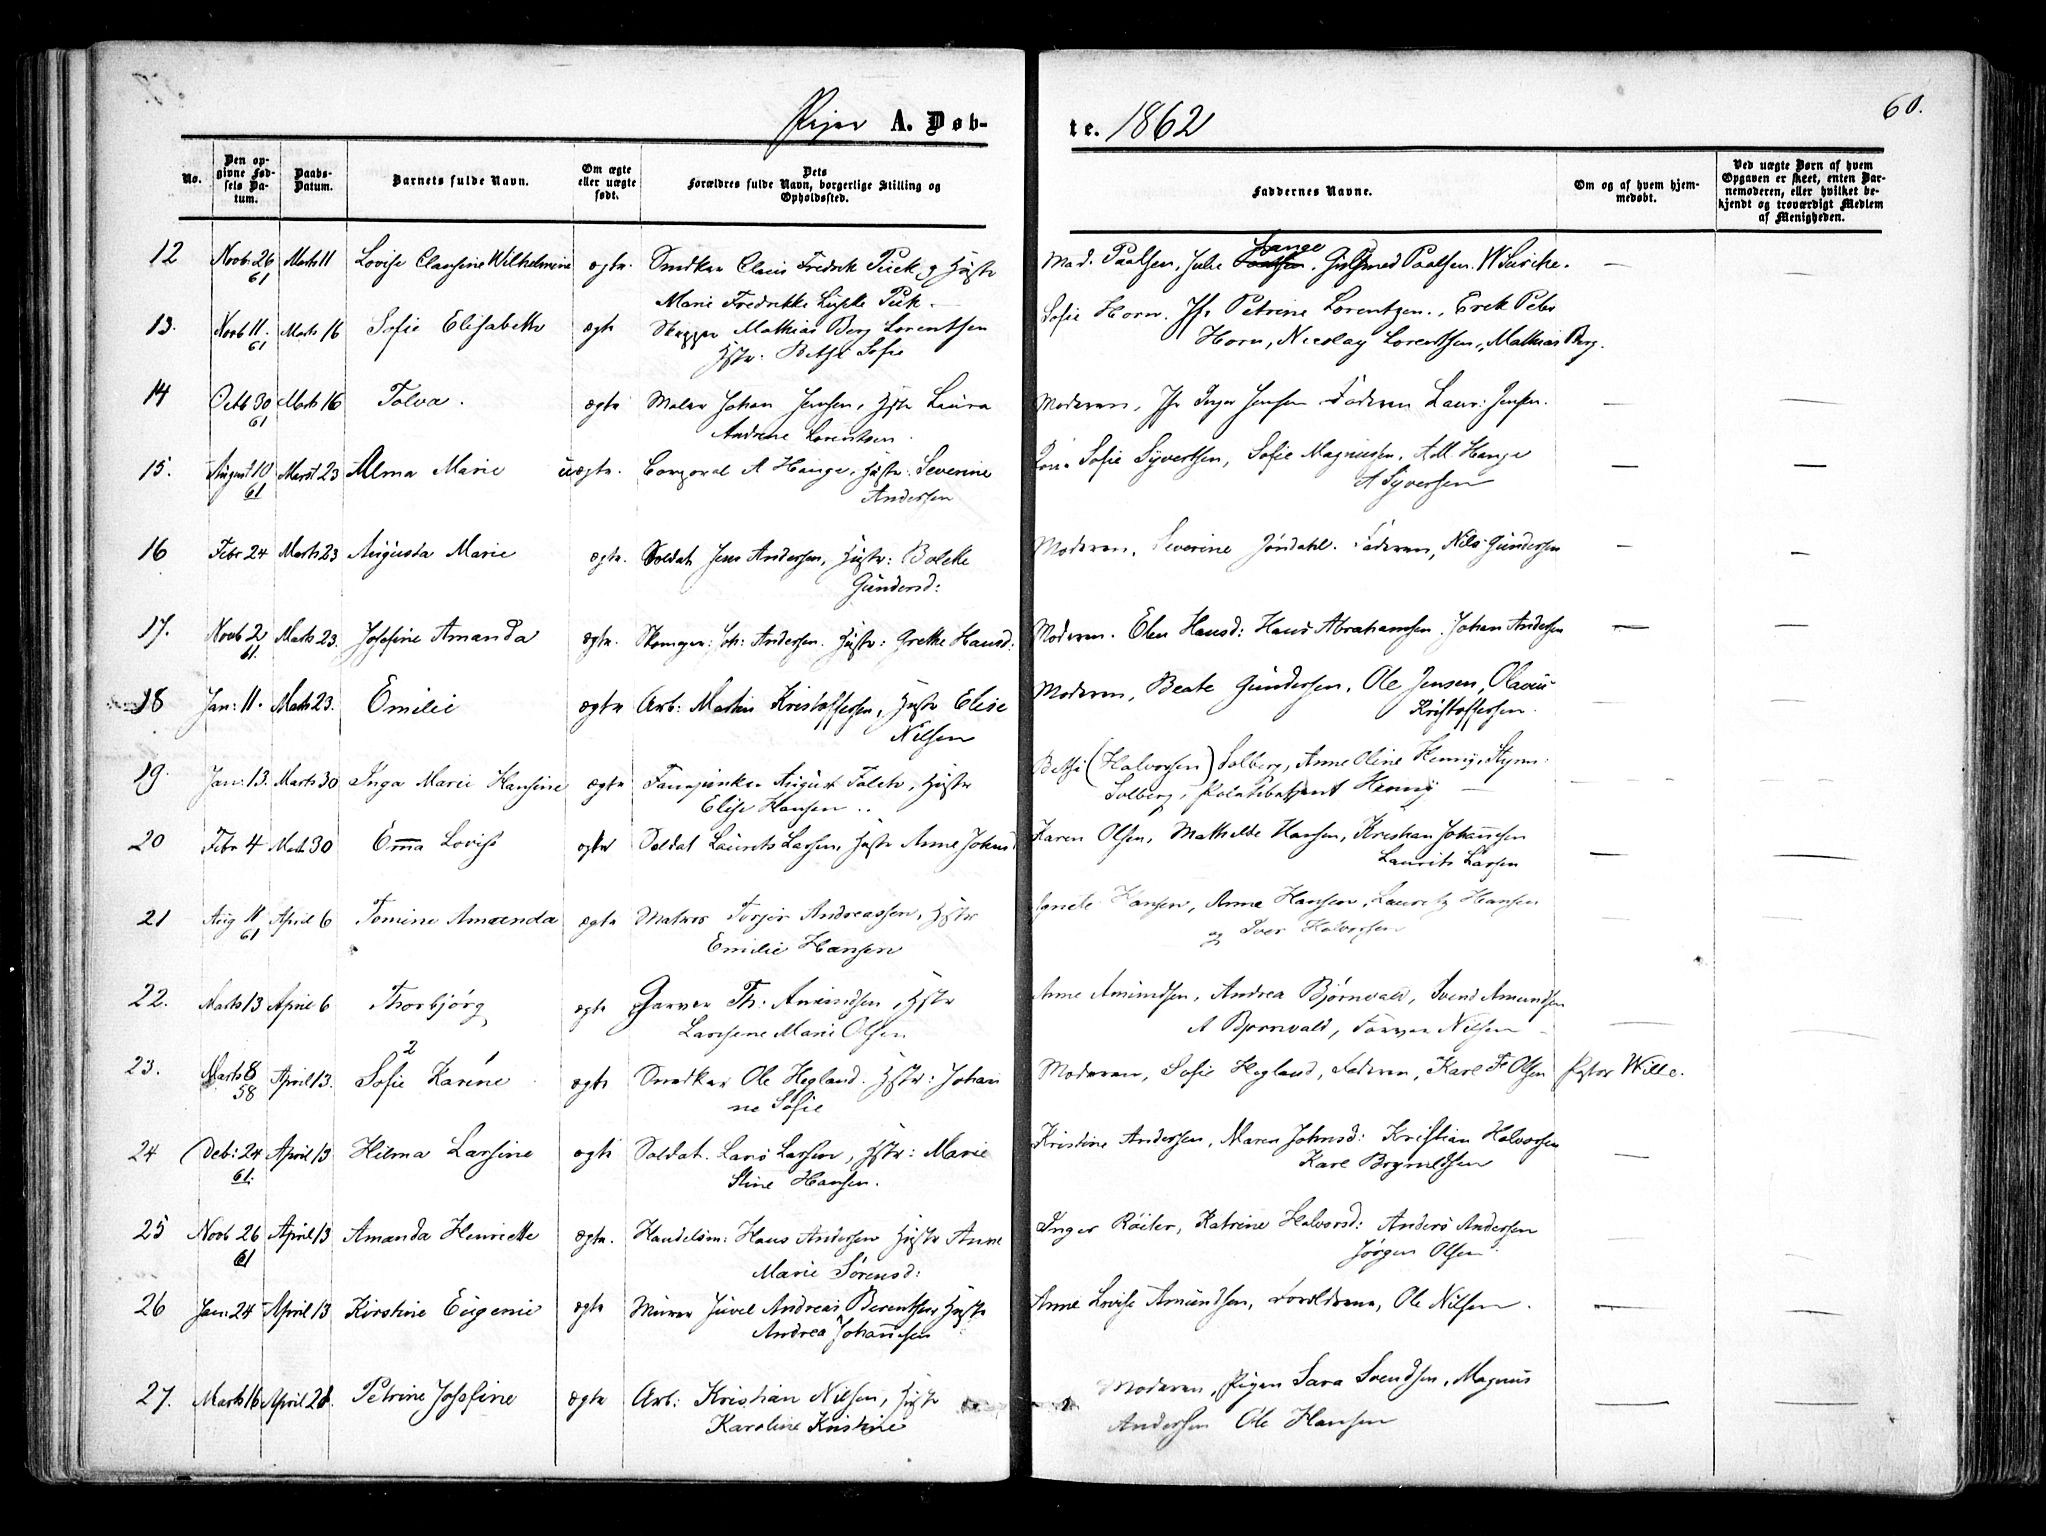 60.
Piger A. Døb- te. 1862
No.
Den op-
givne Fød-
sels Da-
tum.
Daabs-
Datum.
Barnets fulde Navn.
Om ægte
eller uægte
født.
Dets
Forældres fulde Navn, borgerlige Stilling og
Opholdssted.
Faddernes Navne.
Om og af hvem hjem-
medøbt.
Ved uægte Børn af hvem
Opgaven er skeet, enten Bar-
nemoderen, eller hvilket be-
kjendt og troværdigt Medlem
af Menigheden.
12 Novb. 26 Marts 11 Lovise Clausine Wilhelmine ægte. Snedker Claus Fredrik Piek og Hustr Mad. Paalsen, Julie Paalsen Lange. Paalsen. W —
61 Marie Fredrikke Piek —
13. Novb 11. Marts 16 Sofie Elisabeth ægte Skipper Mathias Berg Lorentsen Sofie Horn. Jfr Petrine Lorentzen., Erik Peter
61 Hstr: Sofie Horn, Nicolay Lorentsen, Mathias Berg.
14 Octb 30 Marts 16 Tolva. ægte Maler Johan Jensen, Hstr Laura Moderen, Jfr Inger Jensen Faderen Laur: Jensen. — —
61 Andrine Lorentsen
15. August 10 Marst 23 Alma Marie uægte. Corporal A Hauge, Hustr: Severine Sofie Syvertsen, Sofie Magnusen, Adl Hauge — —
61 Andersen A Syversen
16 Febr 24 Marts 23 Augusta Marie ægte. Soldat Jens Andersen, Hustr: Bolette Moderen, Severine Jøndahl. Faderen, Nils Gundersen — —
Gundersd:
17. Novb 2 Marts 23. Josefine Amanda ægte. Skomger: Joh: Andersen. Hustr: Grethe Hansd: Moderen. Elen Hansd: Hans Abrahamsen. Johan Andersen — —
61.
18 Jan: 11. Marts 23. Emilie ægte Arb: Martin Kristoffersen, Hustr Elise Moderen, Beate Gundersen, Ole Jensen, Olavus — —
Nilsen Kristoffersen.
19. Jan: 13. Marts 30 Inga Marie Hansine ægte August Falch, Hustr Betsi (Halvorsen) Solberg, Anne Oline Henny, — —
Elise Hansen Solberg, Henny —
20 Febr 4 Marts 30 Emma Lovise ægte Soldat Laurits Larsen, Hustr Anne Johnsd Karen Olsen, Mathilde Hansen, Kristian Johannesen — —
Laurits Larsen
21 Aug 11 April 6 Tomine Amanda ægte Matros Torjer Andreassen, Hstr Hansen, Anne Hansen, Lauritz Hansen — —
61 Emilie Hansen og Iver Halvorsen
22. Marts 13 April 6 Thorbjørg ægte Garver Th: Amundsen, Hstr Anne Amundsen, Andrea Bjørnvald, Svend Amundsen — —
Larsene Marie Olsen A Bjornvald, Farver Nilsen —
23. Marts 8 April 13. Sofie 2 Karine 1 ægte Snedker Ole Hegland. Hstr: Johan Moderen, Sofie Hegland, Faderen, Karl F Olsen Pastor Wille. —
58 ne Sofie
24 Deb: 24 April 13 Hilma Larsine ægte Soldat. Lars Larsen, Hstr: Marie Kristine Andersen, Maren Johnsd: Kristian Halvorsen — —
61. Stine Hansen. Karl Brynildsen
25 Novb 26 April 13 Amanda Henriette ægte. Handelsm: Hans Andersen Hustr Anne Inger Röiter, Katrine Halvorsd: Anders Andersen — —
61 Marie Sørensd: Jørgen Olsen
26 Jan: 24 April 13 Kirstine Eugenie ægte Murer Juvel Andreas Berentsen Hustr Anne Lovise Amundsen, Forældrene, Ole Nilsen. — —
Andrea Johannesen
27. Marts 16 April 28. Petrine Josefine ægte Arb: Kristian Nilsen, Hustr Moderen, Pigen Sara Svendsen, Magnus — —
Karoline Kristine Andersen Ole Hansen